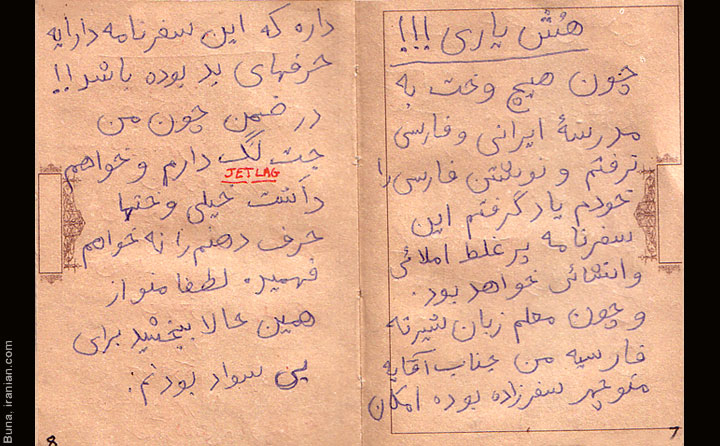 هُش یاری !!!
چون هیچ وخت به
مدرسهٔ ایرانی و فارسی
نرفتم و نویشتن فارسی را
خودم یاد گرفتم این
سفرنامه پر غلط املائی
و انشائی خواهد بود.
و چون معلم زبان شیرنه
فارسیه من جناب آقایه
منوچهر سفرزاده بوده امکان
7
داره که این سفرنامه دارایه
حرفهای بد بوده باشد!!
در ضمن چون من
جت لگ دارم و خواهم
JETLAG
داشت خیلی وختها
حرف دهنم را نه خواهم
فهمید. لطفا منو از
همین حالا ببخشید برای
بی سواد بودنم.
8
Buna, iranian.com